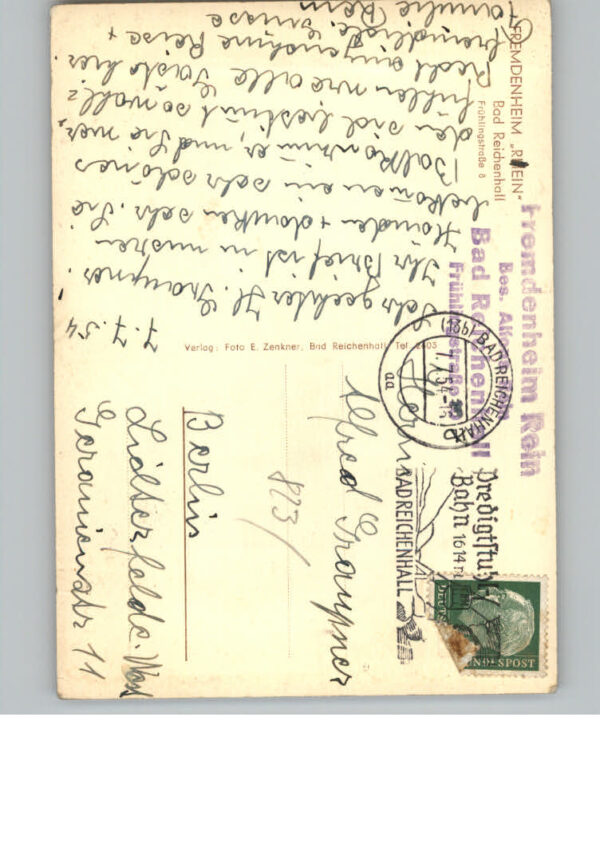 FREMDENHEIM „RHEIN“
Bad Reichenhall
Frühlingstraße 8
Fremdenheim Rein
Bes.
Bad Reichenhall
Frühlingstraße
7.7.54
Sehr geehrter H. Graupner.
Ihr Brief ist in unseren
Händen + danken sehr. Sie
bekommen ein sehr schönes
Balkonzimmer, und Sie wer-
den sich bestimt so wohl
fühlen wie alle Gäste hier.
Recht angenehme Reise +
freundliche Grüsse
Familie Rein
Verlag: Foto E. Zenkner, Bad Reichenhall, Tel. 2603
(13b) BAD REICHENHALL
7.7.54
aa
Predigtstuhl
Bahn 1614 m
BAD REICHENHALL
DEUTSCHE
BUNDESPOST
Herrn
Alfred Graupner
823/
Berlin
Lichterfelde-West
Geranienstr 11